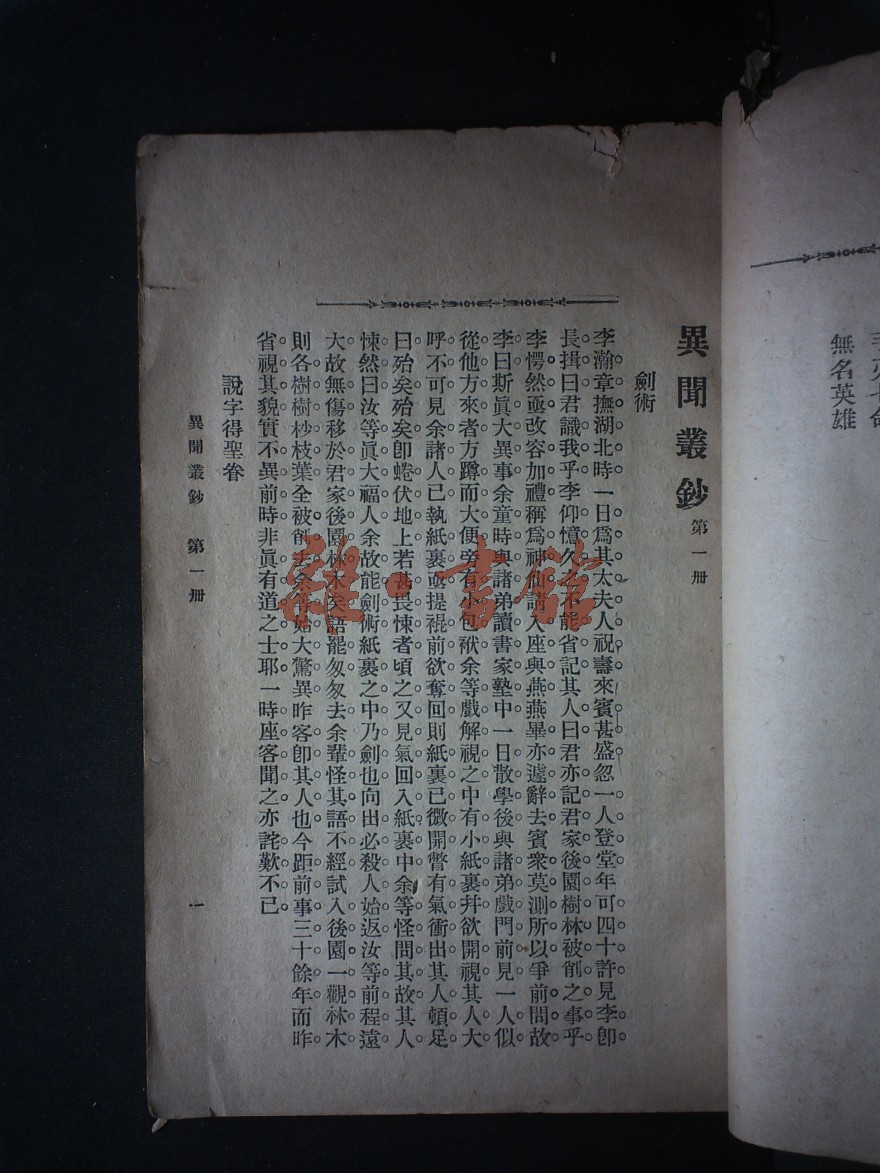 無名英雄
異聞叢鈔 第一册
劍術
李瀚章撫湖北時一日爲其太夫人祝壽來賓甚盛忽一人登堂年可四十許見李卽
長揖曰君識我乎李仰憶久之不能省記其人曰君亦記君家後園樹林被削之事乎
李愕然亟改容加禮稱爲神仙請入座與燕燕畢亦遽辭去賓衆莫測所以爭前問故
李曰斯眞大異事余童時與諸弟讀書家塾中一日散學後與諸弟戲門前見一人似
從他方來者方蹲而大便旁有小包袱余等戲解視之中有小紙裹幷欲開視其人大
呼不可見余諸人已執紙裹亟提裩前欲奪回則紙裹已微開瞥有氣衝出其人頓足
曰殆矣殆矣卽蜷伏地上若甚畏悚者頃之又見氣回入紙裹中余等怪問其故其人
悚然曰汝等眞大福人余故能劍術紙裹之中乃劍也向出必殺人始返汝等前程遠
大故無傷移於君家後園林木矣語罷匆匆去余輩怪其語不經試入後園一觀林木
則各樹樹杪枝葉全被削去余等始大驚異昨客卽其人也今距前事三十餘年而昨
省視其貌實不異前時非眞有道之士耶一時座客聞之亦詫歎不已
說字得聖眷
異聞叢鈔 第一册
一
雜·書館